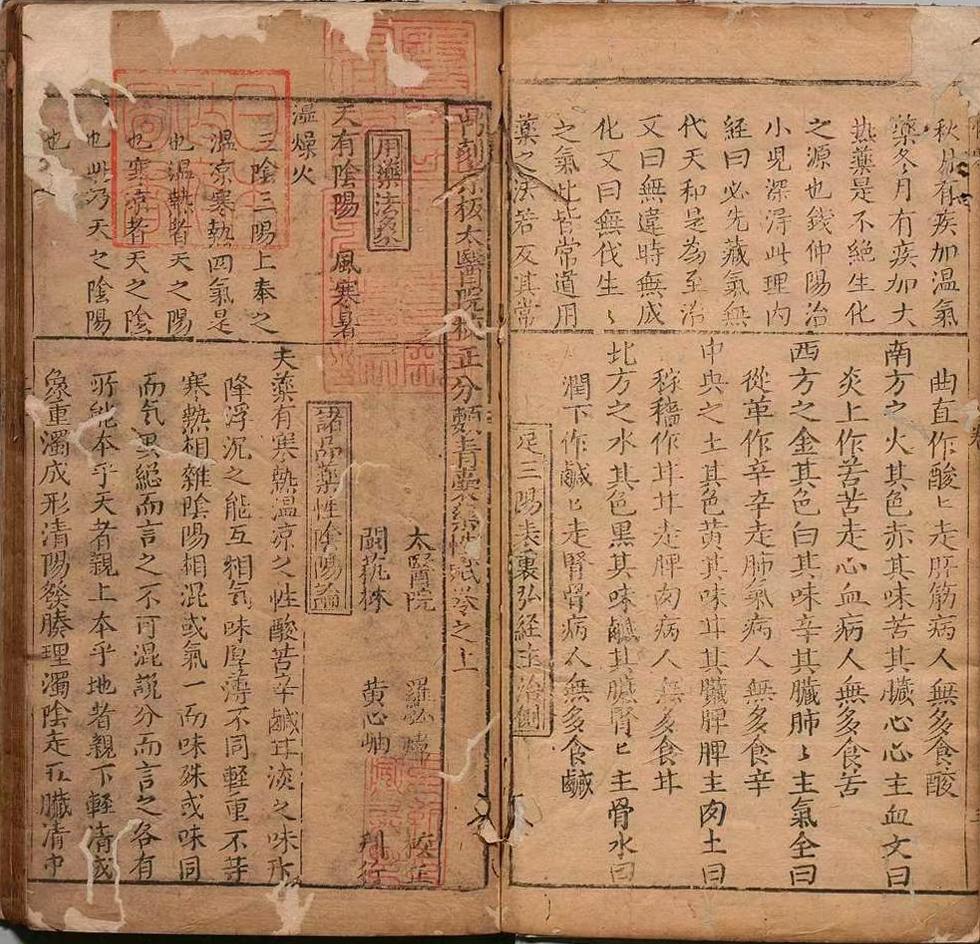 秋月有疾加温氣
藥冬月有疾加大
热藥是不絕生化
之源也錢仲陽治
小児深淂此理内
經曰必先藏氣無
代天和是為至治
又曰無違時無戍
化又曰無伐生〻
之氣此皆常道用
藥之法若反其常
曲直作酸〻走肝筋病人無多食酸
南方之火其色赤其味苦其臟心心主血火曰
炎上作苦苦走心血病人無多食苦
西方之金其色白其味辛其臟肺〻主氣金曰
從革作辛辛走肺氣病人無多食辛
中央之土其色黃其味甘其臟脾脾主肉土曰
稼穡作甘甘走脾肉病人無多食甘
北方之水其色黑其味鹹其臟腎〻主骨水曰
潤下作鹹〻走腎骨病人無多食鹹
足三陽表裏引経主治例
刻京板太醫院校正分類青囊藥性之上
用藥法象
天有陰陽風寒暑
濕燥火
三陰三陽上奉之
温凉寒熱四氣是
也温熱者天之陽
也寒凉者天之陰
也此乃天之陰陽
也
太醫院 羅 校正
閩 黃心岫
諸品藥性陰陽論
夫藥有寒熱温凉之性酸苦辛鹹甘淡之味升
降浮沉之能互相氣味厚薄不同輕重不等
寒熱相雜陰陽相混或氣一而味殊或味同
而気異緫而言之不可混說分而言之各有
所能本乎天者親上本乎地者親下輕清成
象重濁成形清陽發腠理濁陰走五臟清中